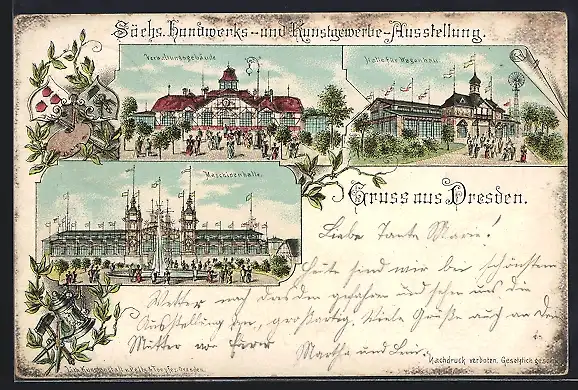 Sächs. Handwerks- und Kunstgewerbe-Ausstellung.
Verwaltungsgebäude
Halle für Wagenbau
Maschinenhalle.
Gruss aus Dresden.
Liebe Tante Marie!
Heute sind wir bei schönstem
Wetter nach Dresden gefahren und sehen uns die
Ausstellung an, großartig. Viele Grüße auch an die
Mutter von Eurer
Martha und
Nachdruck verboten. Gesetzlich gesch
Dresden.